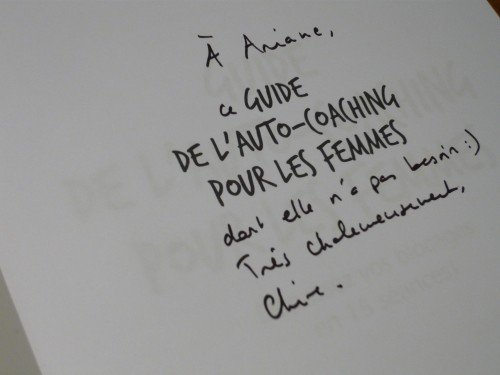 À Ariane,
ce GUIDE
DE L'AUTO-COACHING
POUR LES FEMMES
dont elle n'a pas besoin :)
Très chaleureusement,